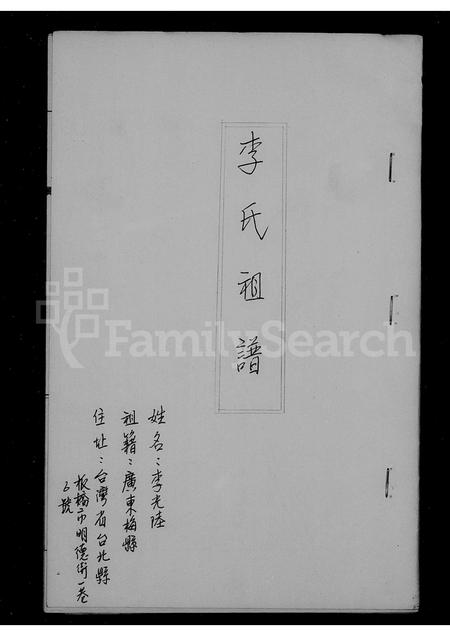 李氏祖譜
姓名：李光陸
祖籍：廣東梅縣
住址：台灣省台北縣
板橋市明德街一巷
号號
FamilySearch